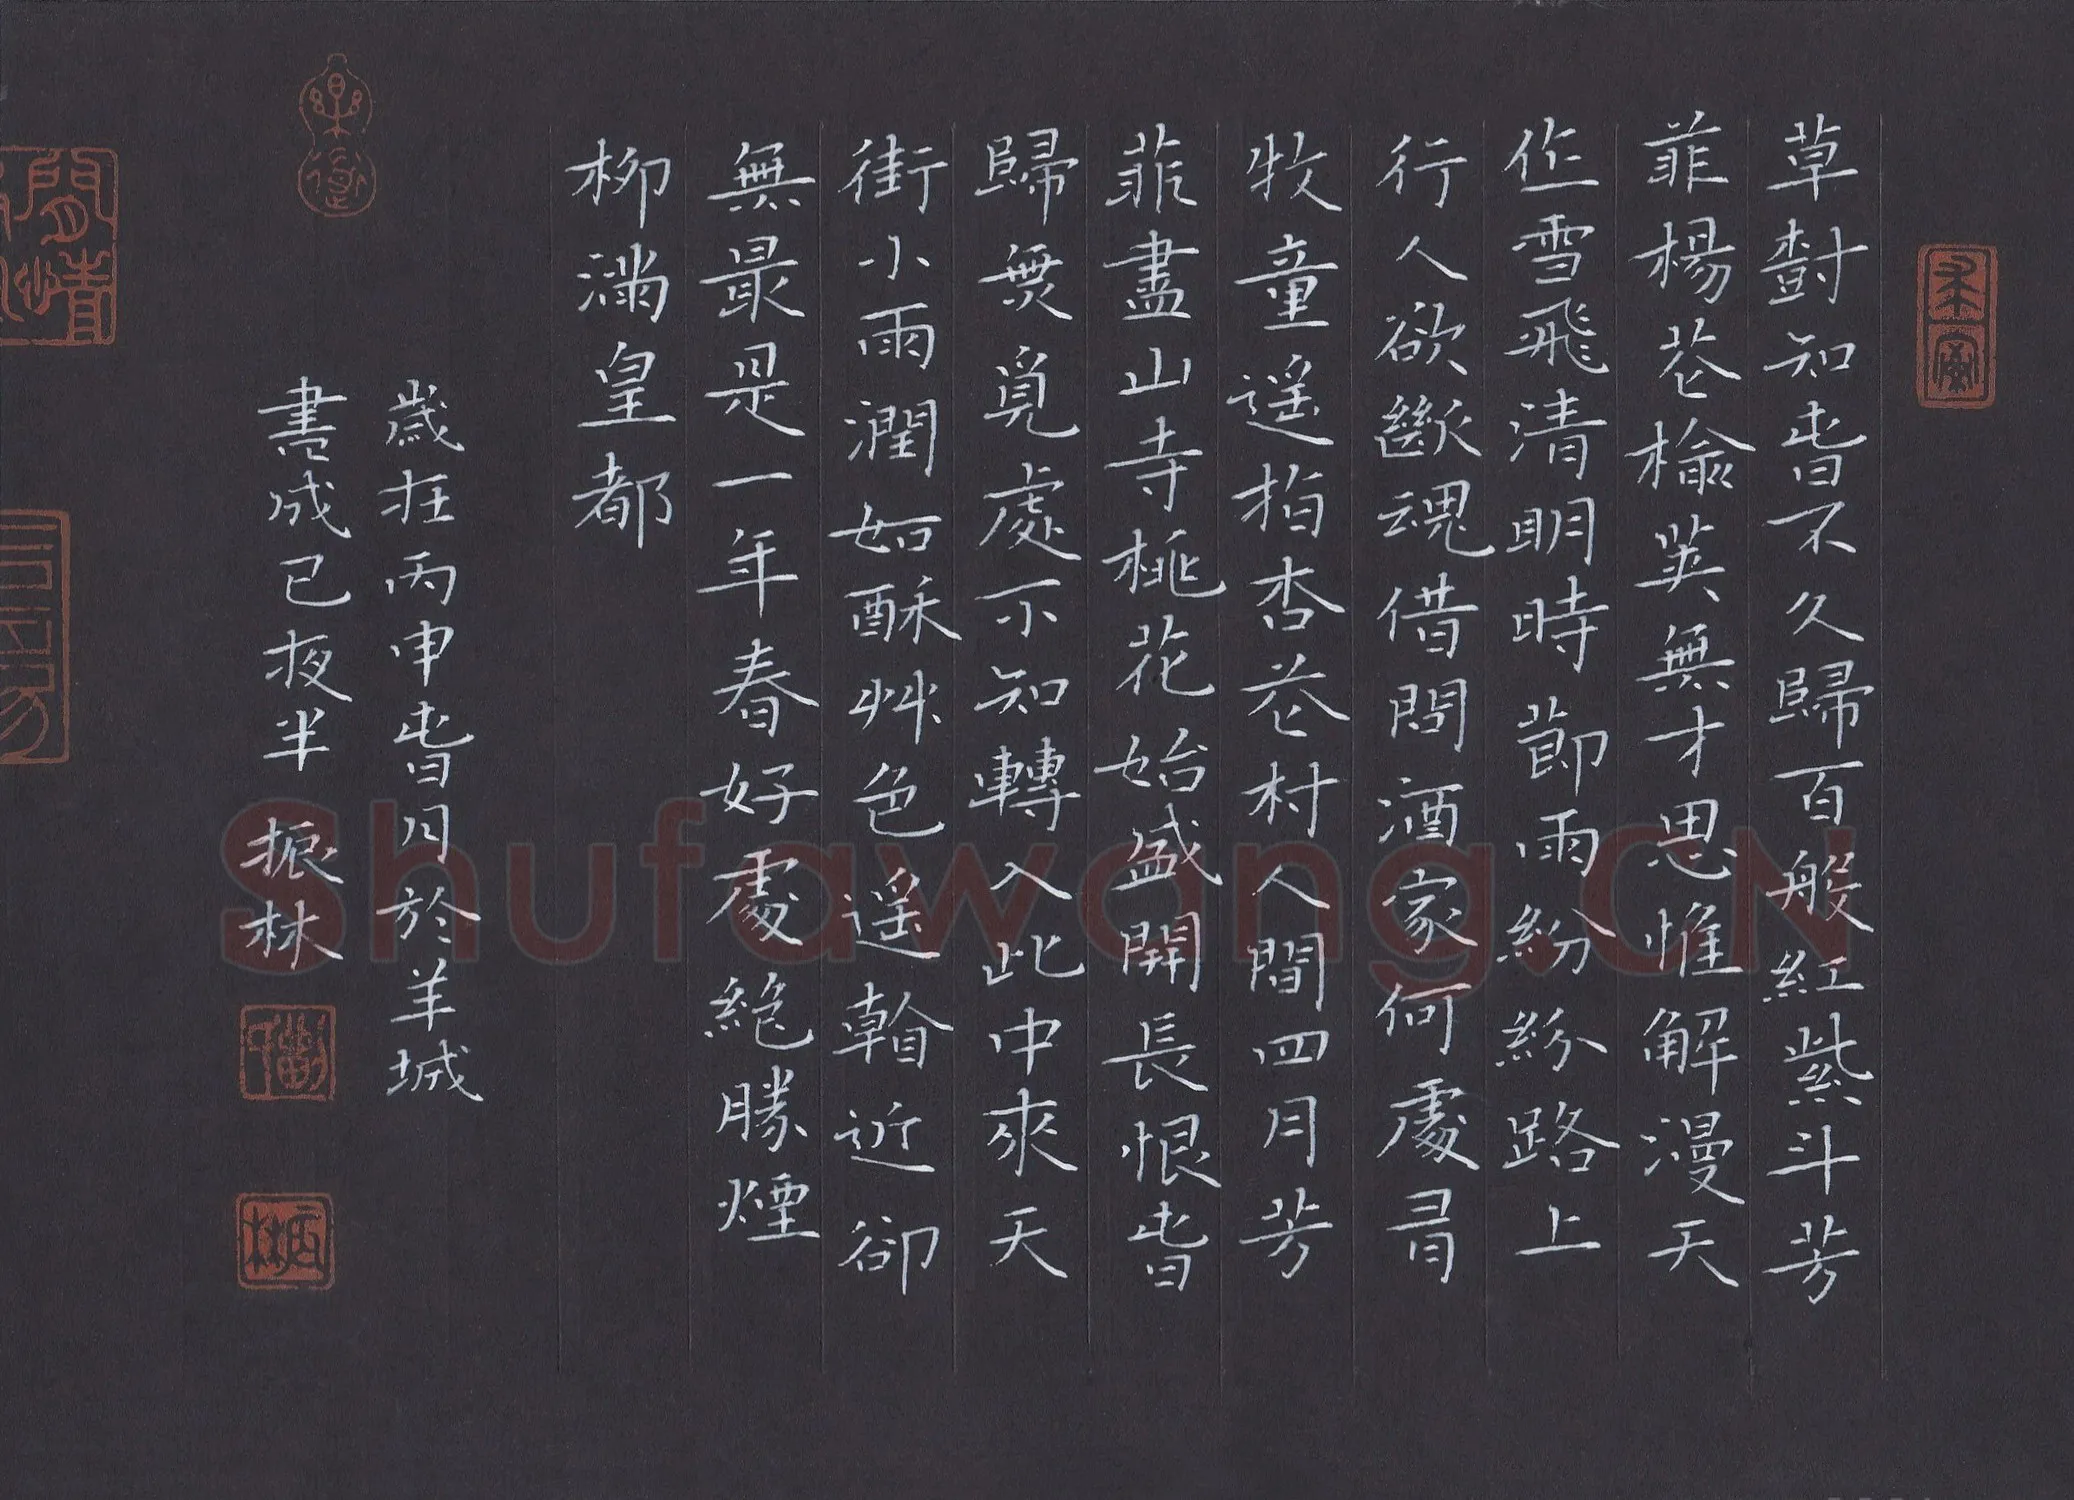 草樹知旾不久歸百般紅紫斗芳
菲楊花榆莢無才思惟解漫天
作雪飛清明時節雨紛紛路上
行人欲斷魂借問酒家何處尋
牧童遥指杏花村人間四月芳
菲盡山寺桃花始盛開長恨旾
歸無覓處不知轉入此中來天
街小雨潤如酥艸色遥看近卻
無最是一年春好處絶勝煙
柳滿皇都
歲在丙申旾月於羊城
書成已夜半 振林
Shufawang.CN